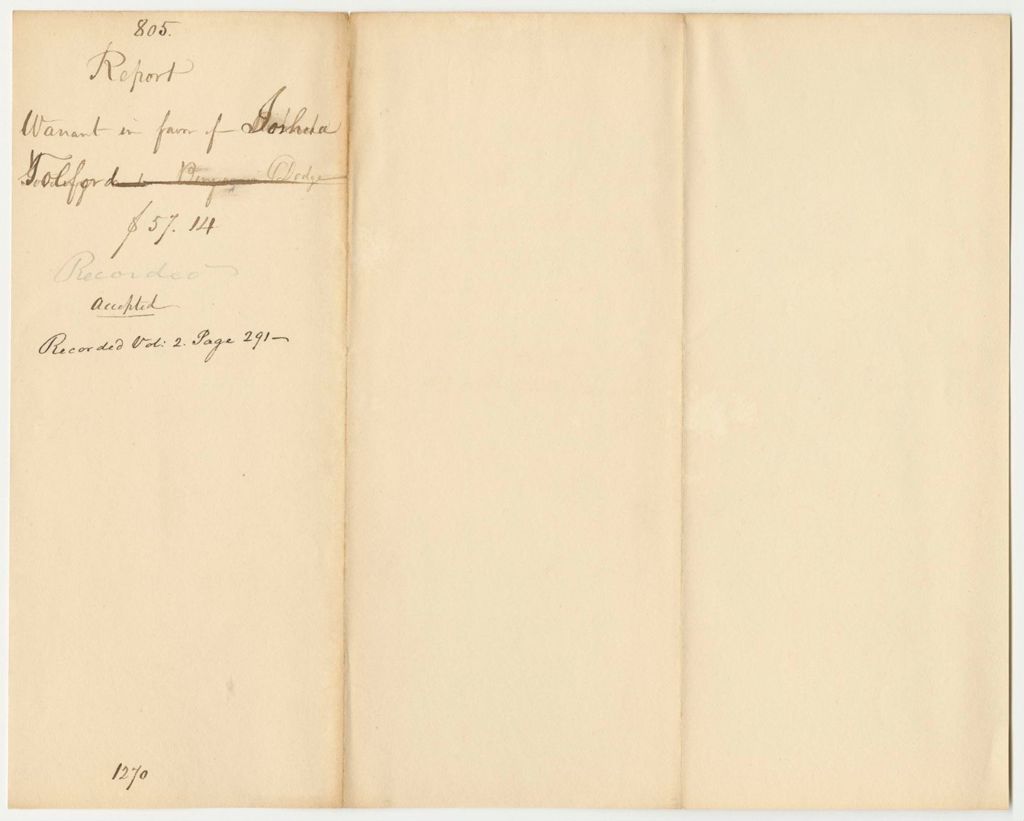 805.
Report
Warrant in favor of Joshua
Toleford Dodge
$57.14
Recorded
Accepted
Recorded Vol: 2. Page 291—
1270